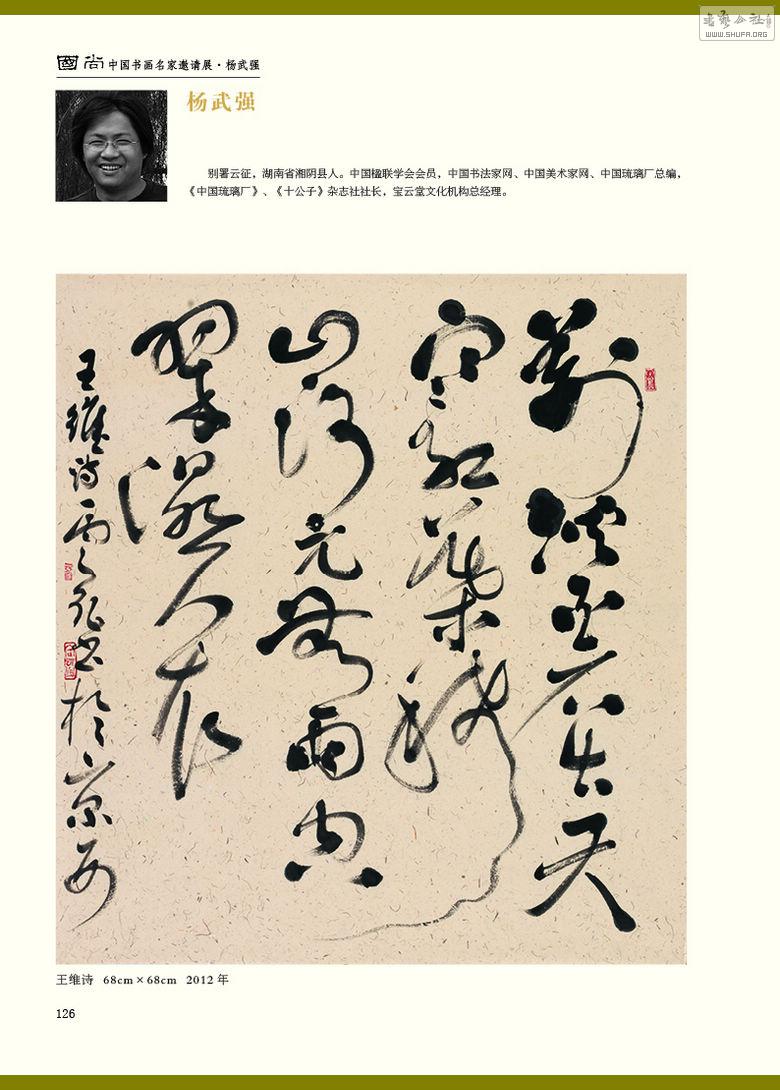 書藝公社
WWW.SHUFA.ORG
國尚 中国书画名家邀请展·杨武强
杨武强
别署云征,湖南省湘阴县人。中国楹联学会会员,中国书法家网、中国美术家网、中国琉璃厂总编,
《中国琉璃厂》、《十公子》杂志社社长,宝云堂文化机构总经理。
荆溪白石出天
寒紅葉稀
山路元無雨空
翠濕人衣
王維詩雲征書於京
王维诗 68cm×68cm 2012 年
126